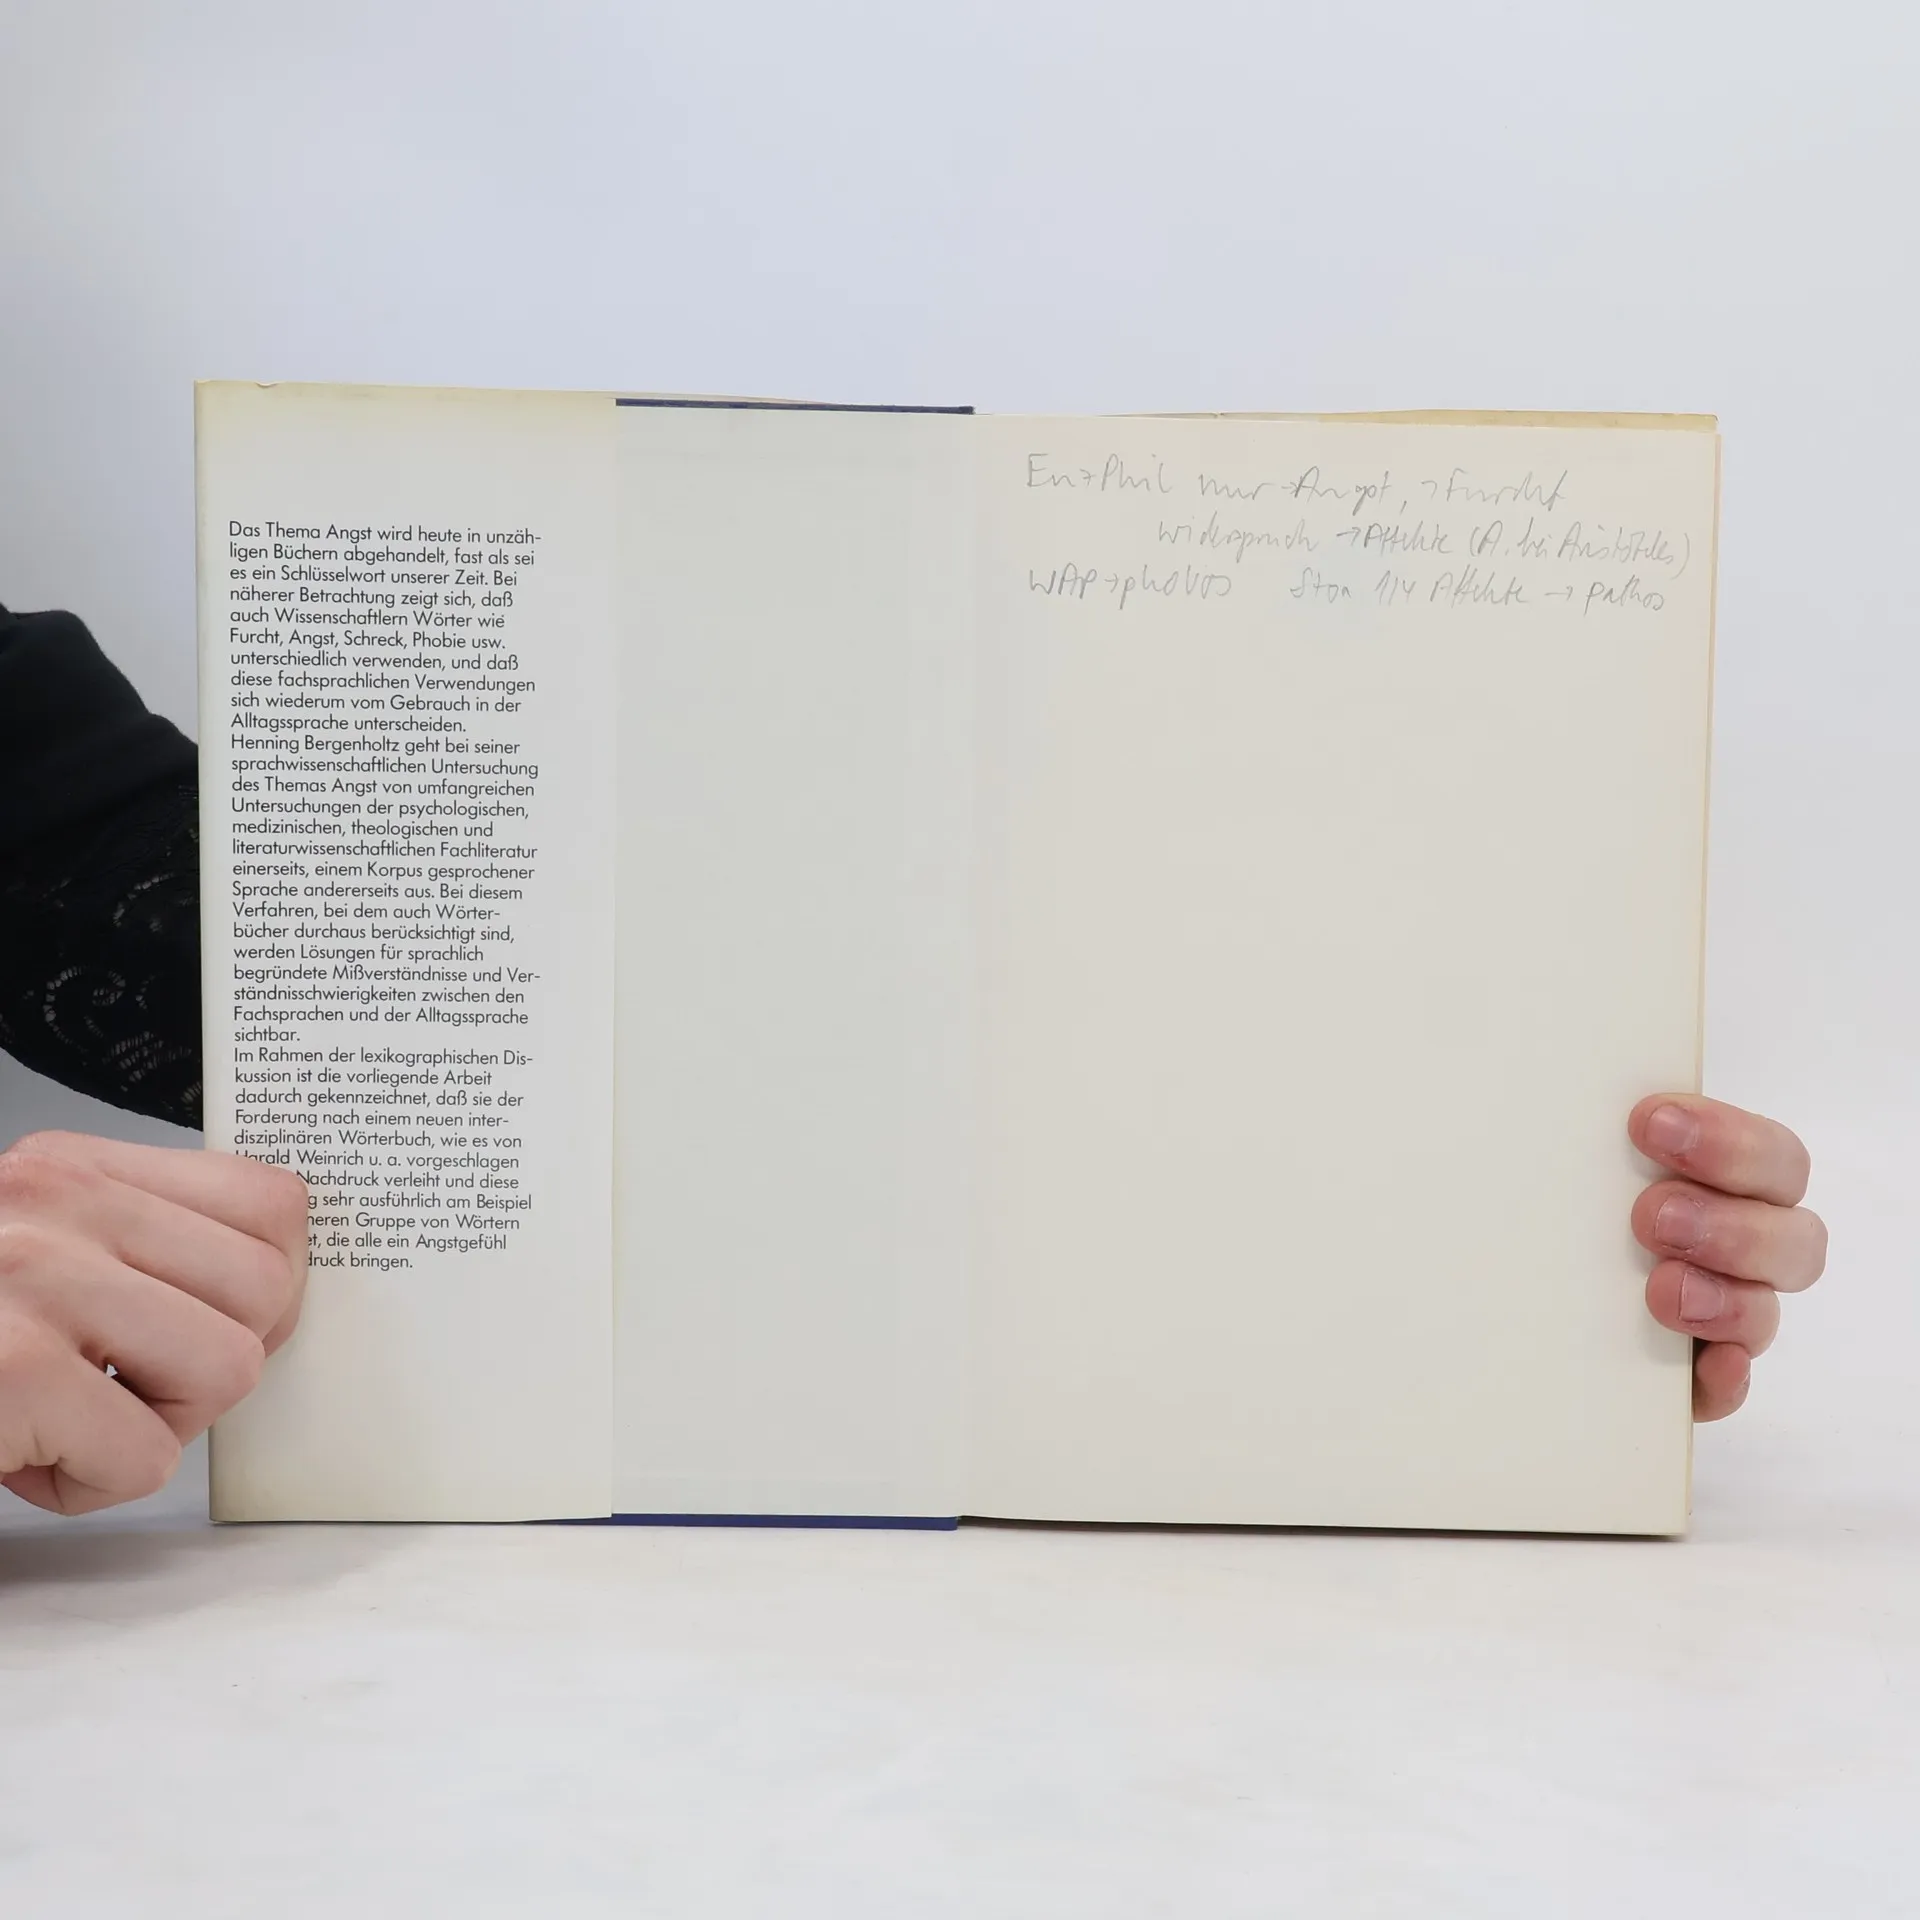 Das Thema Angst wird heute in unzäh-
ligen Büchern abgehandelt, fast als sei
es ein Schlüsselwort unserer Zeit. Bei
näherer Betrachtung zeigt sich, daß
auch Wissenschaftlern Wörter wie
Furcht, Angst, Schreck, Phobie usw.
unterschiedlich verwenden, und daß
diese fachsprachlichen Verwendungen
sich wiederum vom Gebrauch in der
Alltagssprache unterscheiden.
Henning Bergenholtz geht bei seiner
sprachwissenschaftlichen Untersuchung
des Themas Angst von umfangreichen
Untersuchungen der psychologischen,
medizinischen, theologischen und
literaturwissenschaftlichen Fachliteratur
einerseits, einem Korpus gesprochener
Sprache andererseits aus. Bei diesem
Verfahren, bei dem auch Wörter-
bücher durchaus berücksichtigt sind,
werden Lösungen für sprachlich
begründete Mißverständnisse und Ver-
ständnisschwierigkeiten zwischen den
Fachsprachen und der Alltagssprache
sichtbar.
Im Rahmen der lexikographischen Dis-
kussion ist die vorliegende Arbeit
dadurch gekennzeichnet, daß sie der
Forderung nach einem neuen inter-
disziplinären Wörterbuch, wie es von
Harald Weinrich u. a. vorgeschlagen
Nachdruck verleiht und diese
g sehr ausführlich am Beispiel
neren Gruppe von Wörtern
et, die alle ein Angstgefühl
druck bringen.
EnzPhil nur →Angst, →Furcht
widerspruch →Affekte (A. bei Aristoteles)
WAP→phobos 1/4 Affekte → pathos